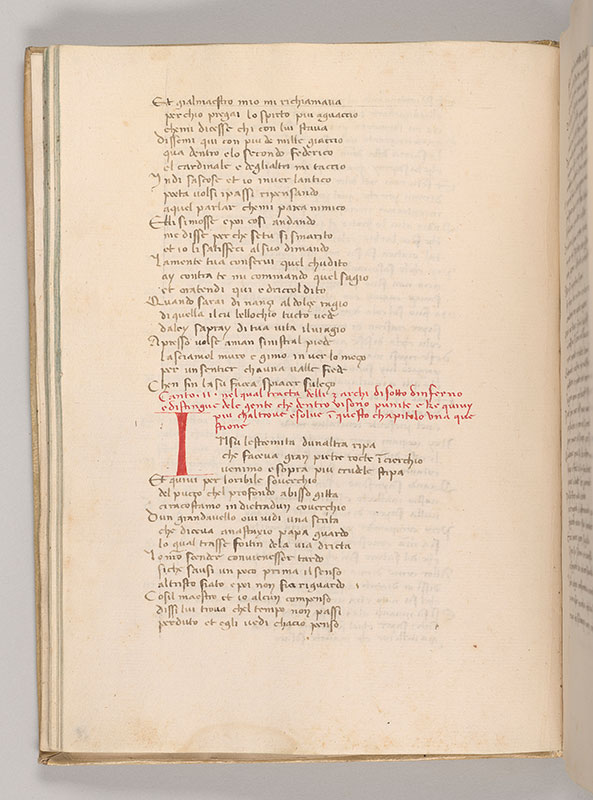 Et gialmaestro mio mi richiamava
perchio pregai lo spirto piu avaccio
chemi dicesse chi con lui stava
Dissemi qui con piu de mille giaccio
qua dentro elo secondo federico
el cardinale e deglialtri mi taccio
Indi sascose et io inver lantico
poeta volsi ipassi ripensando
aquel parlar chemi parea nimico
Elli simosse e poi cosi andando
me disse per che setu si smarito
et io li satisfeci alsuo dimando
Lamente tua conservi quel chudito
ay contra te mi commando quel sagio
et oratendi qui e driccol dito
Quando sarai di nançi aldolçe ragio
di quella il cu bellochio tucto vede
daley sapray di tua vita ilviagio
Apresso volse aman sinistral piede
lasciamol muro e gimo in ver lo meço
per unsentier chauna valle fiede
Chen fin lasu facea spiacer suleço
Canto · 11 · nel qual tracta delle 3 archi disotto dinferno
e distingue dele gente che dentro visono punite e che quivi
piu chaltrove esolve i questo chapitolo una que
stione
INsu lestremita dunaltra ripa
che faceva gran pietre rocte i cierchio
venimo e sopra piu crudele stipa
Et quivi per loribile soverchio
del puço chel profondo abisso gitta
ciracostamo in dietradun coverchio
Dun grandavello ovi vidi una scrita
che diceva anastaxio papa guardo
lo qual trasse fotin dela via dricta
Lo nro scender convienesser tardo
siche sausi un poco prima il senso
altristo fialo e poi non fia riguardo
Cosil maestro et io alcun compenso
dissi lui trova chel tempo non passi
perduto et egli vedi chacio penso